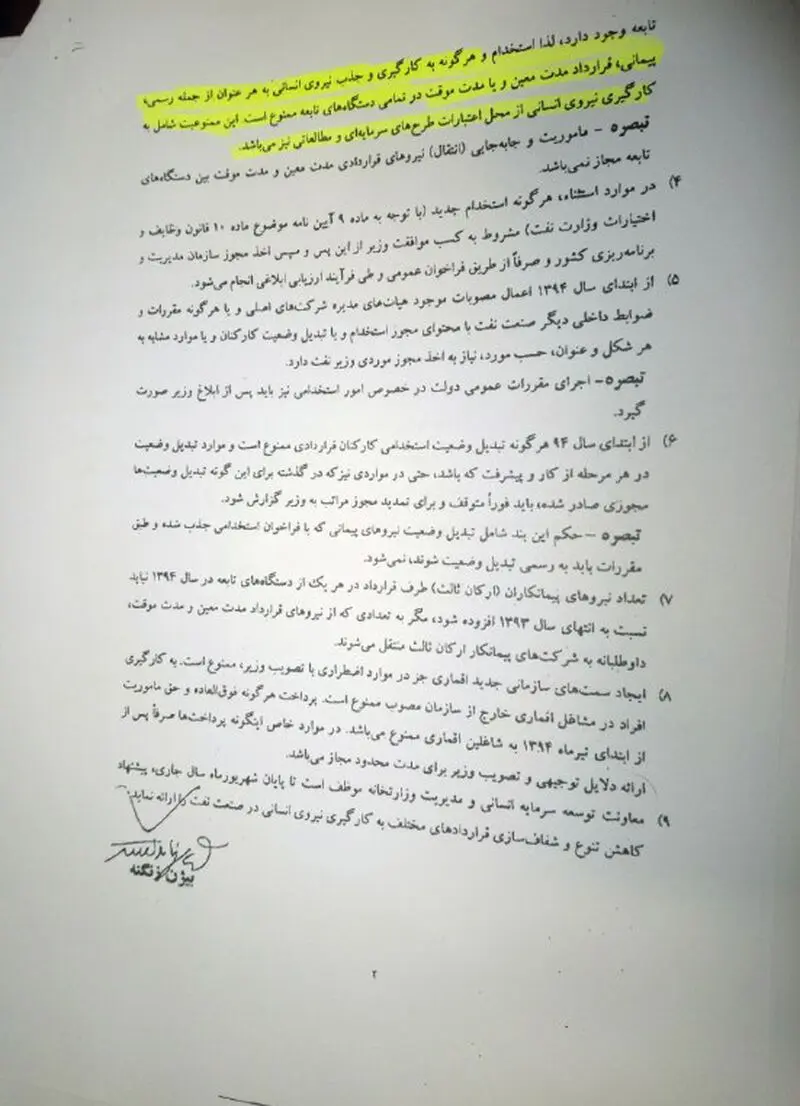 تابعه وجود دارد، لذا استخدام و هرگونه به کارگیری و جذب نیروی انسانی به هر عنوان از جمله رسمی،
پیمانی، قرارداد مدت معین و یا مدت موقت در تمامی دستگاه‌های تابعه ممنوع است. این ممنوعیت شامل به
کارگیری نیروی انسانی از محل اعتبارات طرح‌های سرمایه‌ای و مطالعاتی نیز می‌باشد.
تبصره - ماموریت و جابه‌جایی (انتقال) نیروهای قراردادی مدت معین و مدت موقت بین دستگاه‌های
تابعه مجاز نمی‌باشد.
۴) در موارد استثناء، هرگونه استخدام جدید (با توجه به ماده ۹ آیین نامه موضوع ماده ۱۰ قانون وظایف و
اختیارات وزارت نفت) مشروط به کسب موافقت وزیر از این پس و سپس اخذ مجوز سازمان مدیریت و
برنامه‌ریزی کشور و صرفاً از طریق فراخوان عمومی و طی فرآیند ارزیابی ابلاغی انجام می‌شود.
۵) از ابتدای سال ۱۳۹۴ اعمال مصوبات موجود هیات‌های مدیره شرکت‌های اصلی و یا هرگونه مقررات و
ضوابط داخلی دیگر صنعت نفت با محتوای مجوز استخدام و یا تبدیل وضعیت کارکنان و یا موارد مشابه به
هر شکل و عنوان، حسب مورد، نیاز به اخذ مجوز موردی وزیر نفت دارد.
تبصره- اجرای مقررات عمومی دولت در خصوص امور استخدامی نیز باید پس از ابلاغ وزیر صورت
گیرد.
۶) از ابتدای سال ۹۴ هرگونه تبدیل وضعیت استخدامی کارکنان قراردادی ممنوع است و موارد تبدیل وضعیت
در هر مرحله از کار و پیشرفت که باشد، حتی در مواردی نیز که در گذشته برای این گونه تبدیل وضعیت‌ها
مجوزی صادر شده، باید فوراً متوقف و برای تمدید مجوز مراتب به وزیر گزارش شود.
تبصره - حکم این بند شامل تبدیل وضعیت نیروهای پیمانی که با فراخوان استخدامی جذب شده و طبق
مقررات باید به رسمی تبدیل وضعیت شوند، نمی‌شود.
۷) تعداد نیروهای پیمانکاران (ارکان ثالث) طرف قرارداد در هر یک از دستگاه‌های تابعه در سال ۱۳۹۴ نباید
نسبت به انتهای سال ۱۳۹۳ افزوده شود، مگر به تعدادی که از نیروهای قرارداد مدت معین و مدت موقت،
داوطلبانه به شرکت‌های پیمانکار ارکان ثالث منتقل می‌شوند.
۸) ایجاد سمت‌های سازمانی جدید اقماری جز در موارد اضطراری با تصویب وزیر، ممنوع است. به کارگیری
افراد در مشاغل اقماری خارج از سازمان مصوب ممنوع است. پرداخت هرگونه فوق‌العاده و حق ماموریت
از ابتدای تیرماه ۱۳۹۴ به شاغلین اقماری ممنوع می‌باشد. در موارد خاص اینگونه پرداخت‌ها صرفاً پس از
ارائه دلایل توجیهی و تصویب وزیر برای مدت محدود مجاز می‌باشد.
۹) معاونت توسعه سرمایه انسانی و مدیریت وزارتخانه موظف است تا پایان شهریورماه سال جاری، پیشنهاد
کاهش تنوع و شفاف‌سازی قراردادهای مختلف به کارگیری نیروی انسانی در صنعت نفت را ارائه نماید.
بیژن زنگنه
۲